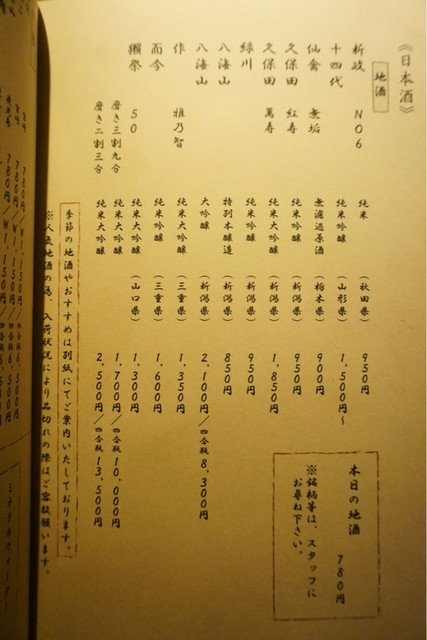 《日本酒》
地酒
新政 NO6 純米 (秋田県) 950円
十四代 純米吟醸 (山形県) 1,500円〜
仙禽 無垢 無濾過原酒 (栃木県) 900円
久保田 紅寿 純米吟醸 (新潟県) 950円
久保田 萬寿 純米大吟醸 (新潟県) 1,850円
緑川 純米吟醸 (新潟県) 950円
八海山 特別本醸造 (新潟県) 850円
八海山 大吟醸 (新潟県) 2,100円/四合瓶8,300円
作 雅乃智 純米大吟醸 (三重県) 1,350円
而今 純米吟醸 (三重県) 1,600円
獺祭 50 純米大吟醸 (山口県) 1,300円
磨き三割九分 純米大吟醸 1,700円/四合瓶10,000円
磨き二割三分 純米大吟醸 2,500円/四合瓶13,500円
季節の地酒やおすすめは別紙にてご案内いたしております。
※人気地酒の為、入荷状況により品切れの際はご容赦願います。
本日の地酒 780円
※銘柄等は、スタッフに
お尋ね下さい。